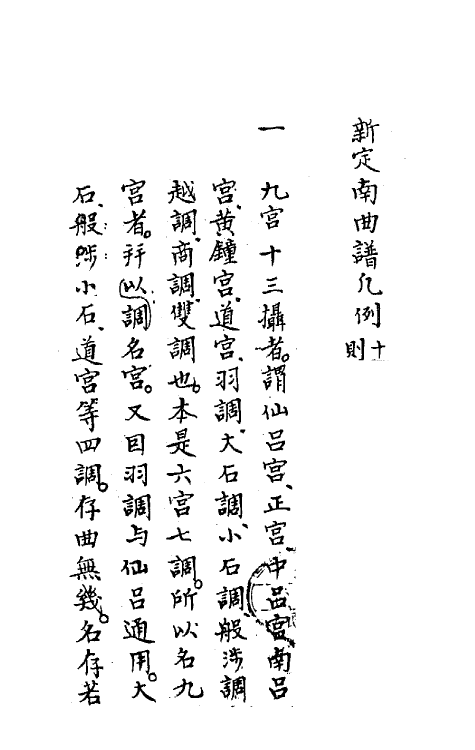 新定南曲譜凡例十則
一　九宮十三攝者。謂仙呂宮、正宮、中呂宮、南呂
宮、黃鐘宮、道宮、羽調、大石調、小石調、般涉調
越調、商調、雙調也。本是六宮七調。所以名九
宮者。拜以調名宮。又因羽調与仙呂通用。大
石、般涉、小石、道宮等四調。存曲無幾。名存若